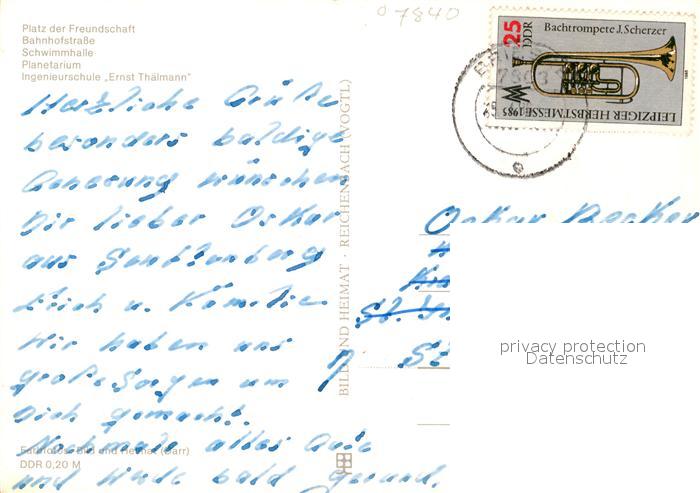 07840
Platz der Freundschaft
Bahnhofstraße
Schwimmhalle
Planetarium
Ingenieurschule „Ernst Thälmann"
25 DDR
Bachtrompete J. Scherzer
LEIPZIGER HERBSTMESSE 1985
Herzliche Grüße
besonders baldige
Genesung wünschen
Dir lieber Oskar
aus Senftenberg
u. Familie
Wir haben uns
große Sorgen um
Dich gemacht.
Nochmals alles Gute
und werde bald gesund.
BILD UND HEIMAT · REICHENBACH (VOGTL)
Oskar Becker
privacy protection
Datenschutz
Farbfotos: Bild und Heimat (Darr)
DDR 0,20 M